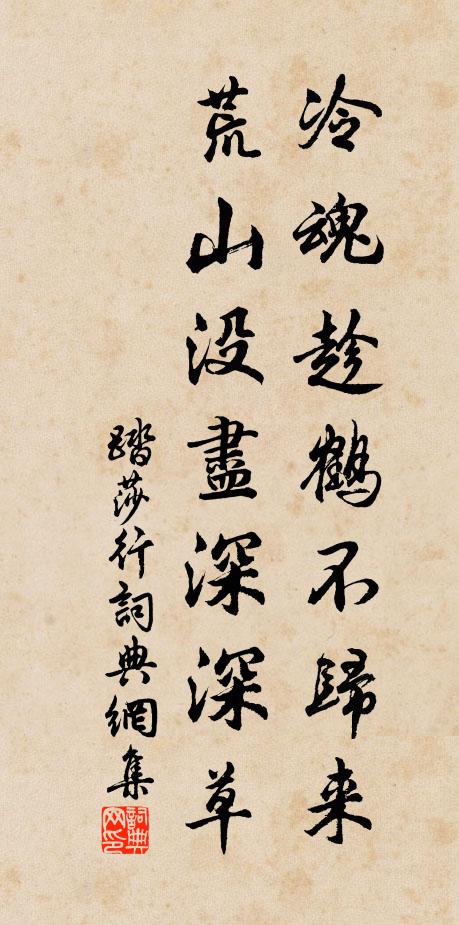 冷魂趁鶴不歸来
荒山没盡深深草
踏莎行詞典網集
詞典网印